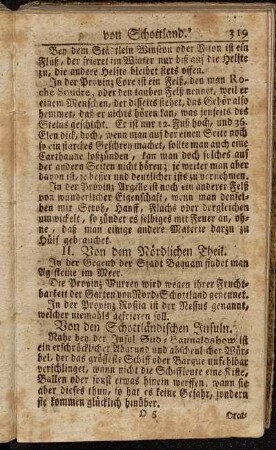 von Schottland. 319
Bey dem Städtlein Winson oder Vion ist ein
Fluß, der frieret im Winter nur biß auf die Helfte
zu, die andere Helfte bleibet stets offen.
In der Provinz Core ist ein Felß, den man Ro-
che Soudre, oder den tauben Felß nennet, weil er
einem Menschen, der disseits stehet, das Gehör also
hemmet, daß er nichts hören kan, was jenseits des
Steins geschicht. Er ist nur 20. Fuß hoch, und 36.
Elen dick, doch, wenn man auf der einen Seite noch
so ein starckes Geschrey machet, sollte man auch eine
Carthaune loßzünden, kan man doch solches auf
der andern Seiten nicht hören; je weiter man aber
davon ist, je besser und deutlicher ists zu vernehmen.
In der Provinz Argeile ist noch ein anderer Felß
von wunderlicher Eigenschafft, wenn man denssel-
ben mit Stroh, Hanff, Flachs oder dergleichen
umwickelt, so zündet es selbiges mit Feuer an, oh-
ne, daß man einige andere Materie darzu zu
Hülf gebrauchet.
II. Von dem Nördlichen Theil.
In der Gegend der Stadt Baquam findet man
Agtsteine im Meer.
Die Provinz Murrey wird wegen ihrer Frucht-
barkeit der Garten von Nord-Schottland genennet.
In der Provinz Roßia ist der Nessus genannt,
welcher niemahls gefrieren soll.
Von den Schottländischen Insuln.
Nahe bey der Insul Sud-Saunaldshow ist
ein erschröcklicher Abgrund und abscheulicher Wür-
bel, der das gröseste Schiff oder Barque unfehlbar
verschlinget, wann nicht die Schiffleute eine Kiste,
Ballen oder sonst etwas hinein werffen, wann sie
aber dieses thun, so hat es keine Gefahr, sondern
sie kommen glücklich hinüber.
O 5 Orca-